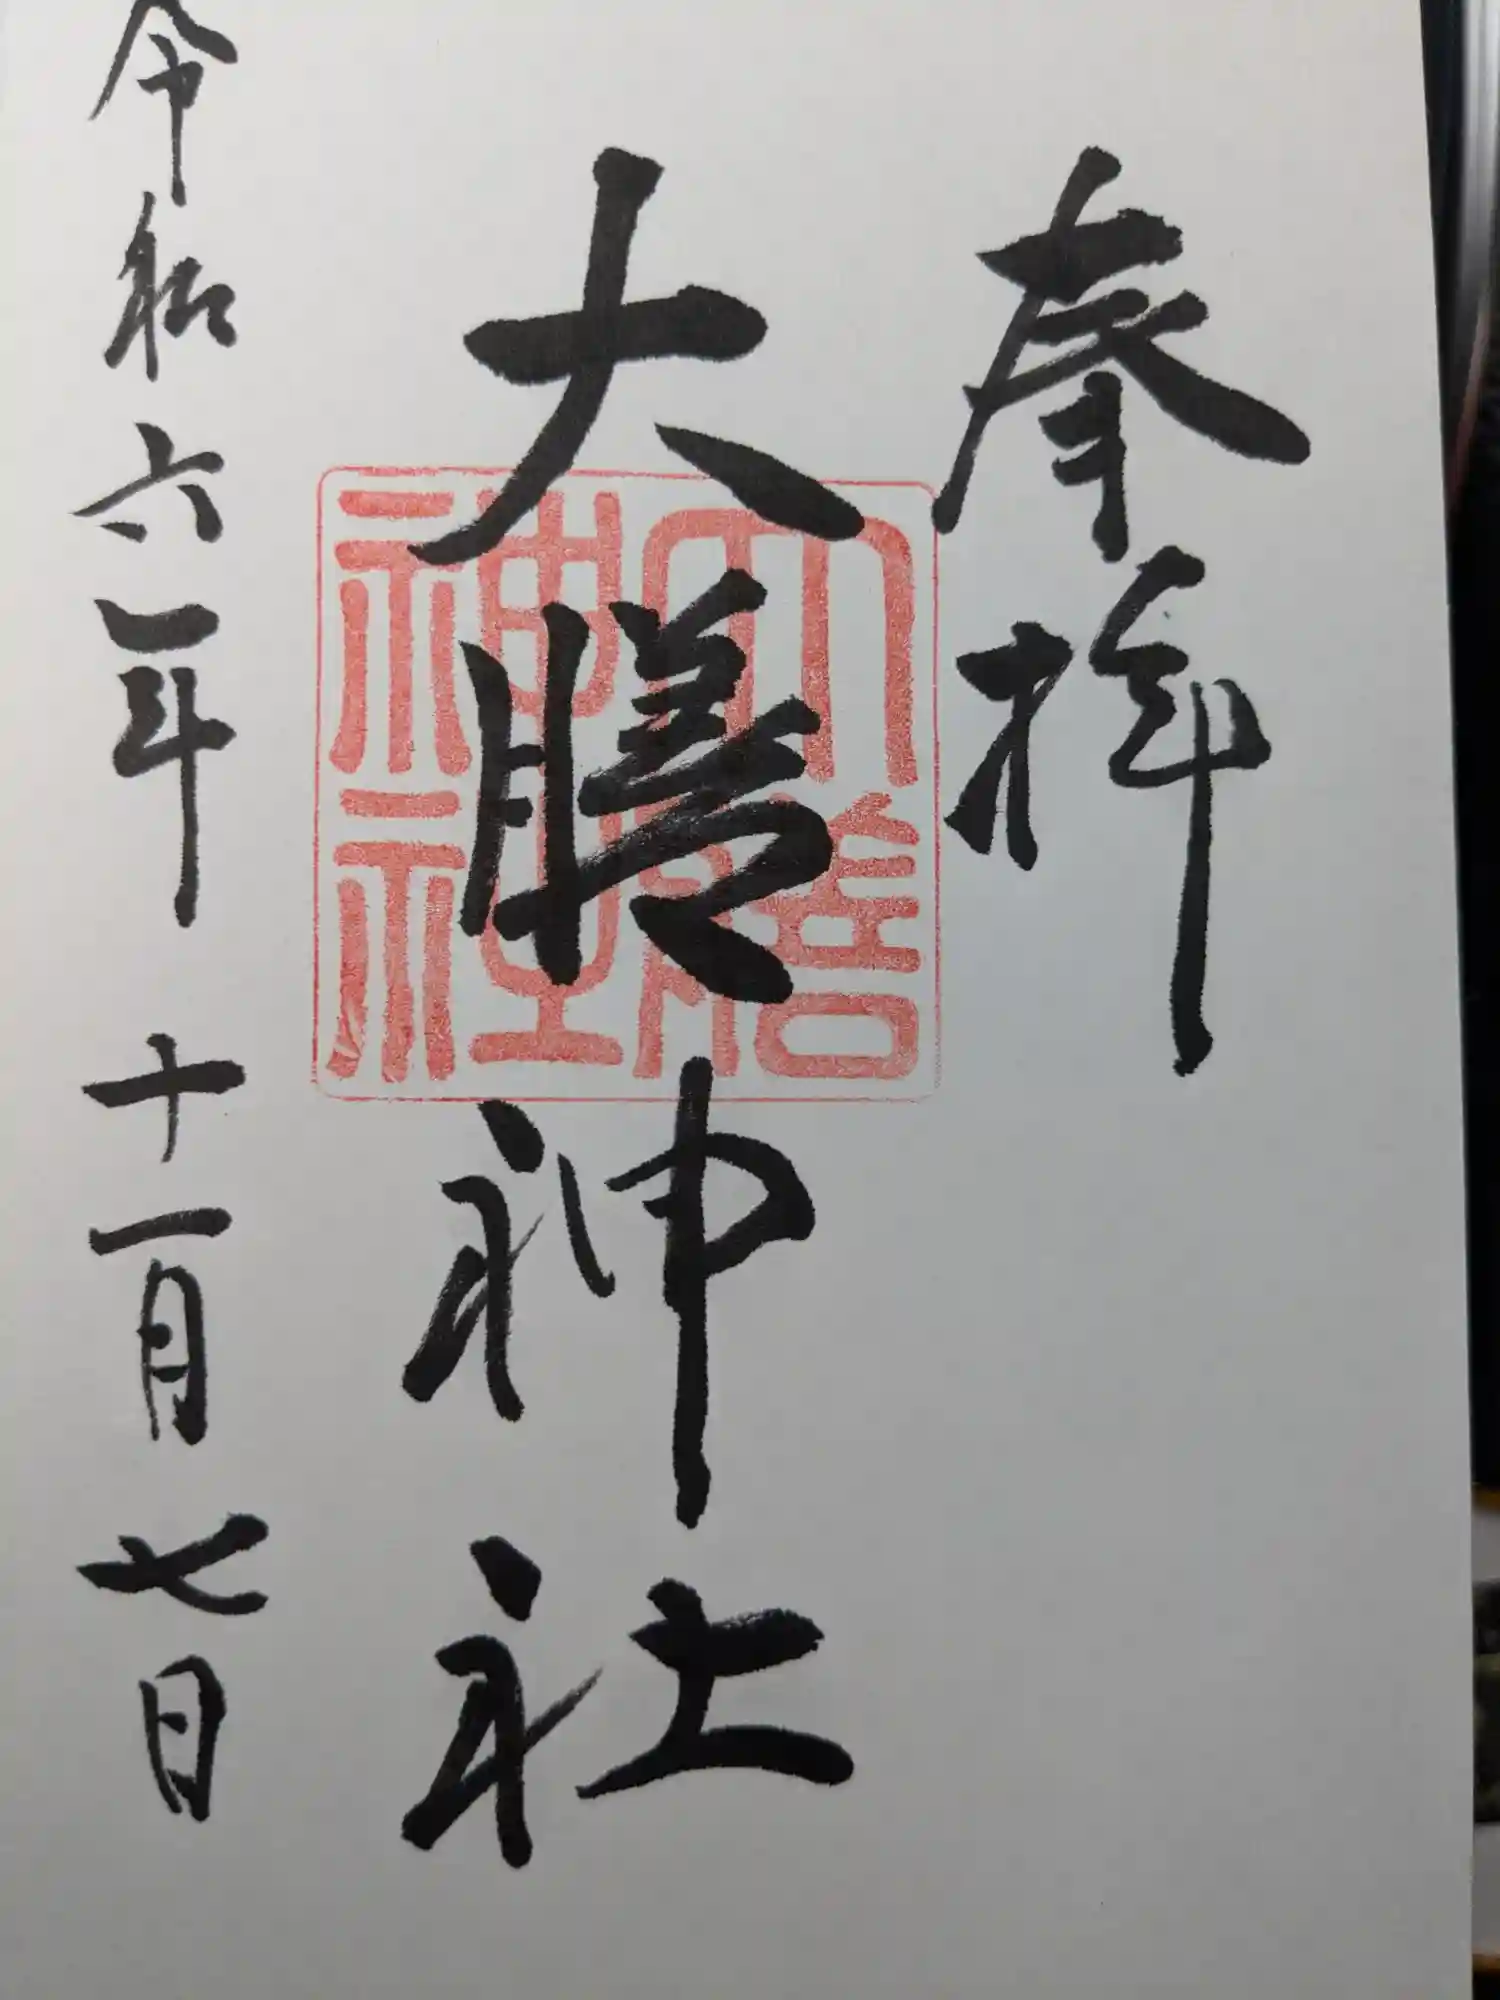 奉拝
大膳神社
大膳神社
令和六年 十一月 七日